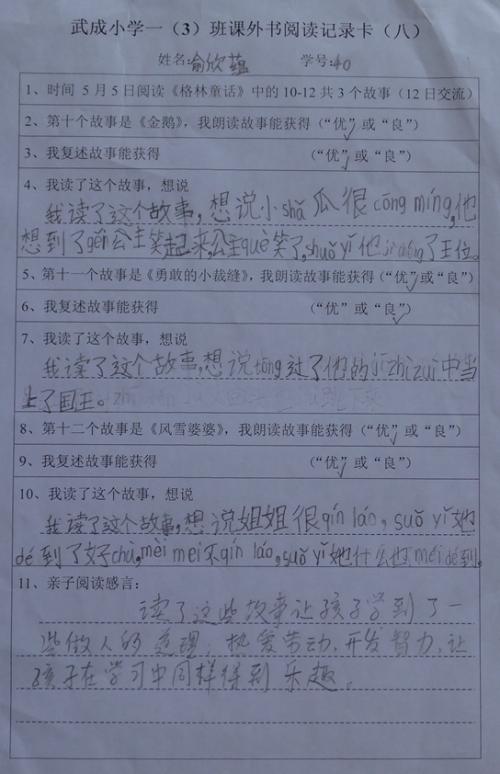 武成小学一（3）班课外书阅读记录卡（八）
姓名:俞欣蕴 学号:40
1、时间 5 月 5 日阅读《格林童话》中的 10-12 共 3 个故事（12 日交流）
2、第十个故事是《金鹅》，我朗读故事能获得（“优”或“良”）
3、我复述故事能获得 （“优”或“良”）
4、我读了这个故事，想说
我读了这个故事，想说小shǎ瓜很cōng míng,他
想到了gěi公主笑起来,公主què笑了,shuǒ yǐ他 了王位。
5、第十一个故事是《勇敢的小裁缝》，我朗读故事能获得（“优”或“良”）
6、我复述故事能获得 （“优”或“良”）
7、我读了这个故事，想说
我读了这个故事,想说tōng过了他的jī zhì zuì中当
上了国王。
8、第十二个故事是《风雪婆婆》，我朗读故事能获得（“优”或“良”）
9、我复述故事能获得 （“优”或“良”）
10、我读了这个故事，想说
我读了这个故事,想说姐姐很qín láo，suǒ yǐ她
dé到了好chù,mèi mei不qín láo,suǒ yǐ她什么也méi dé到。
11、亲子阅读感言:
读了这些故事让孩子学到了一
些做人的道理，热爱劳动,开发智力,让
孩子在学习中同样得到乐趣。